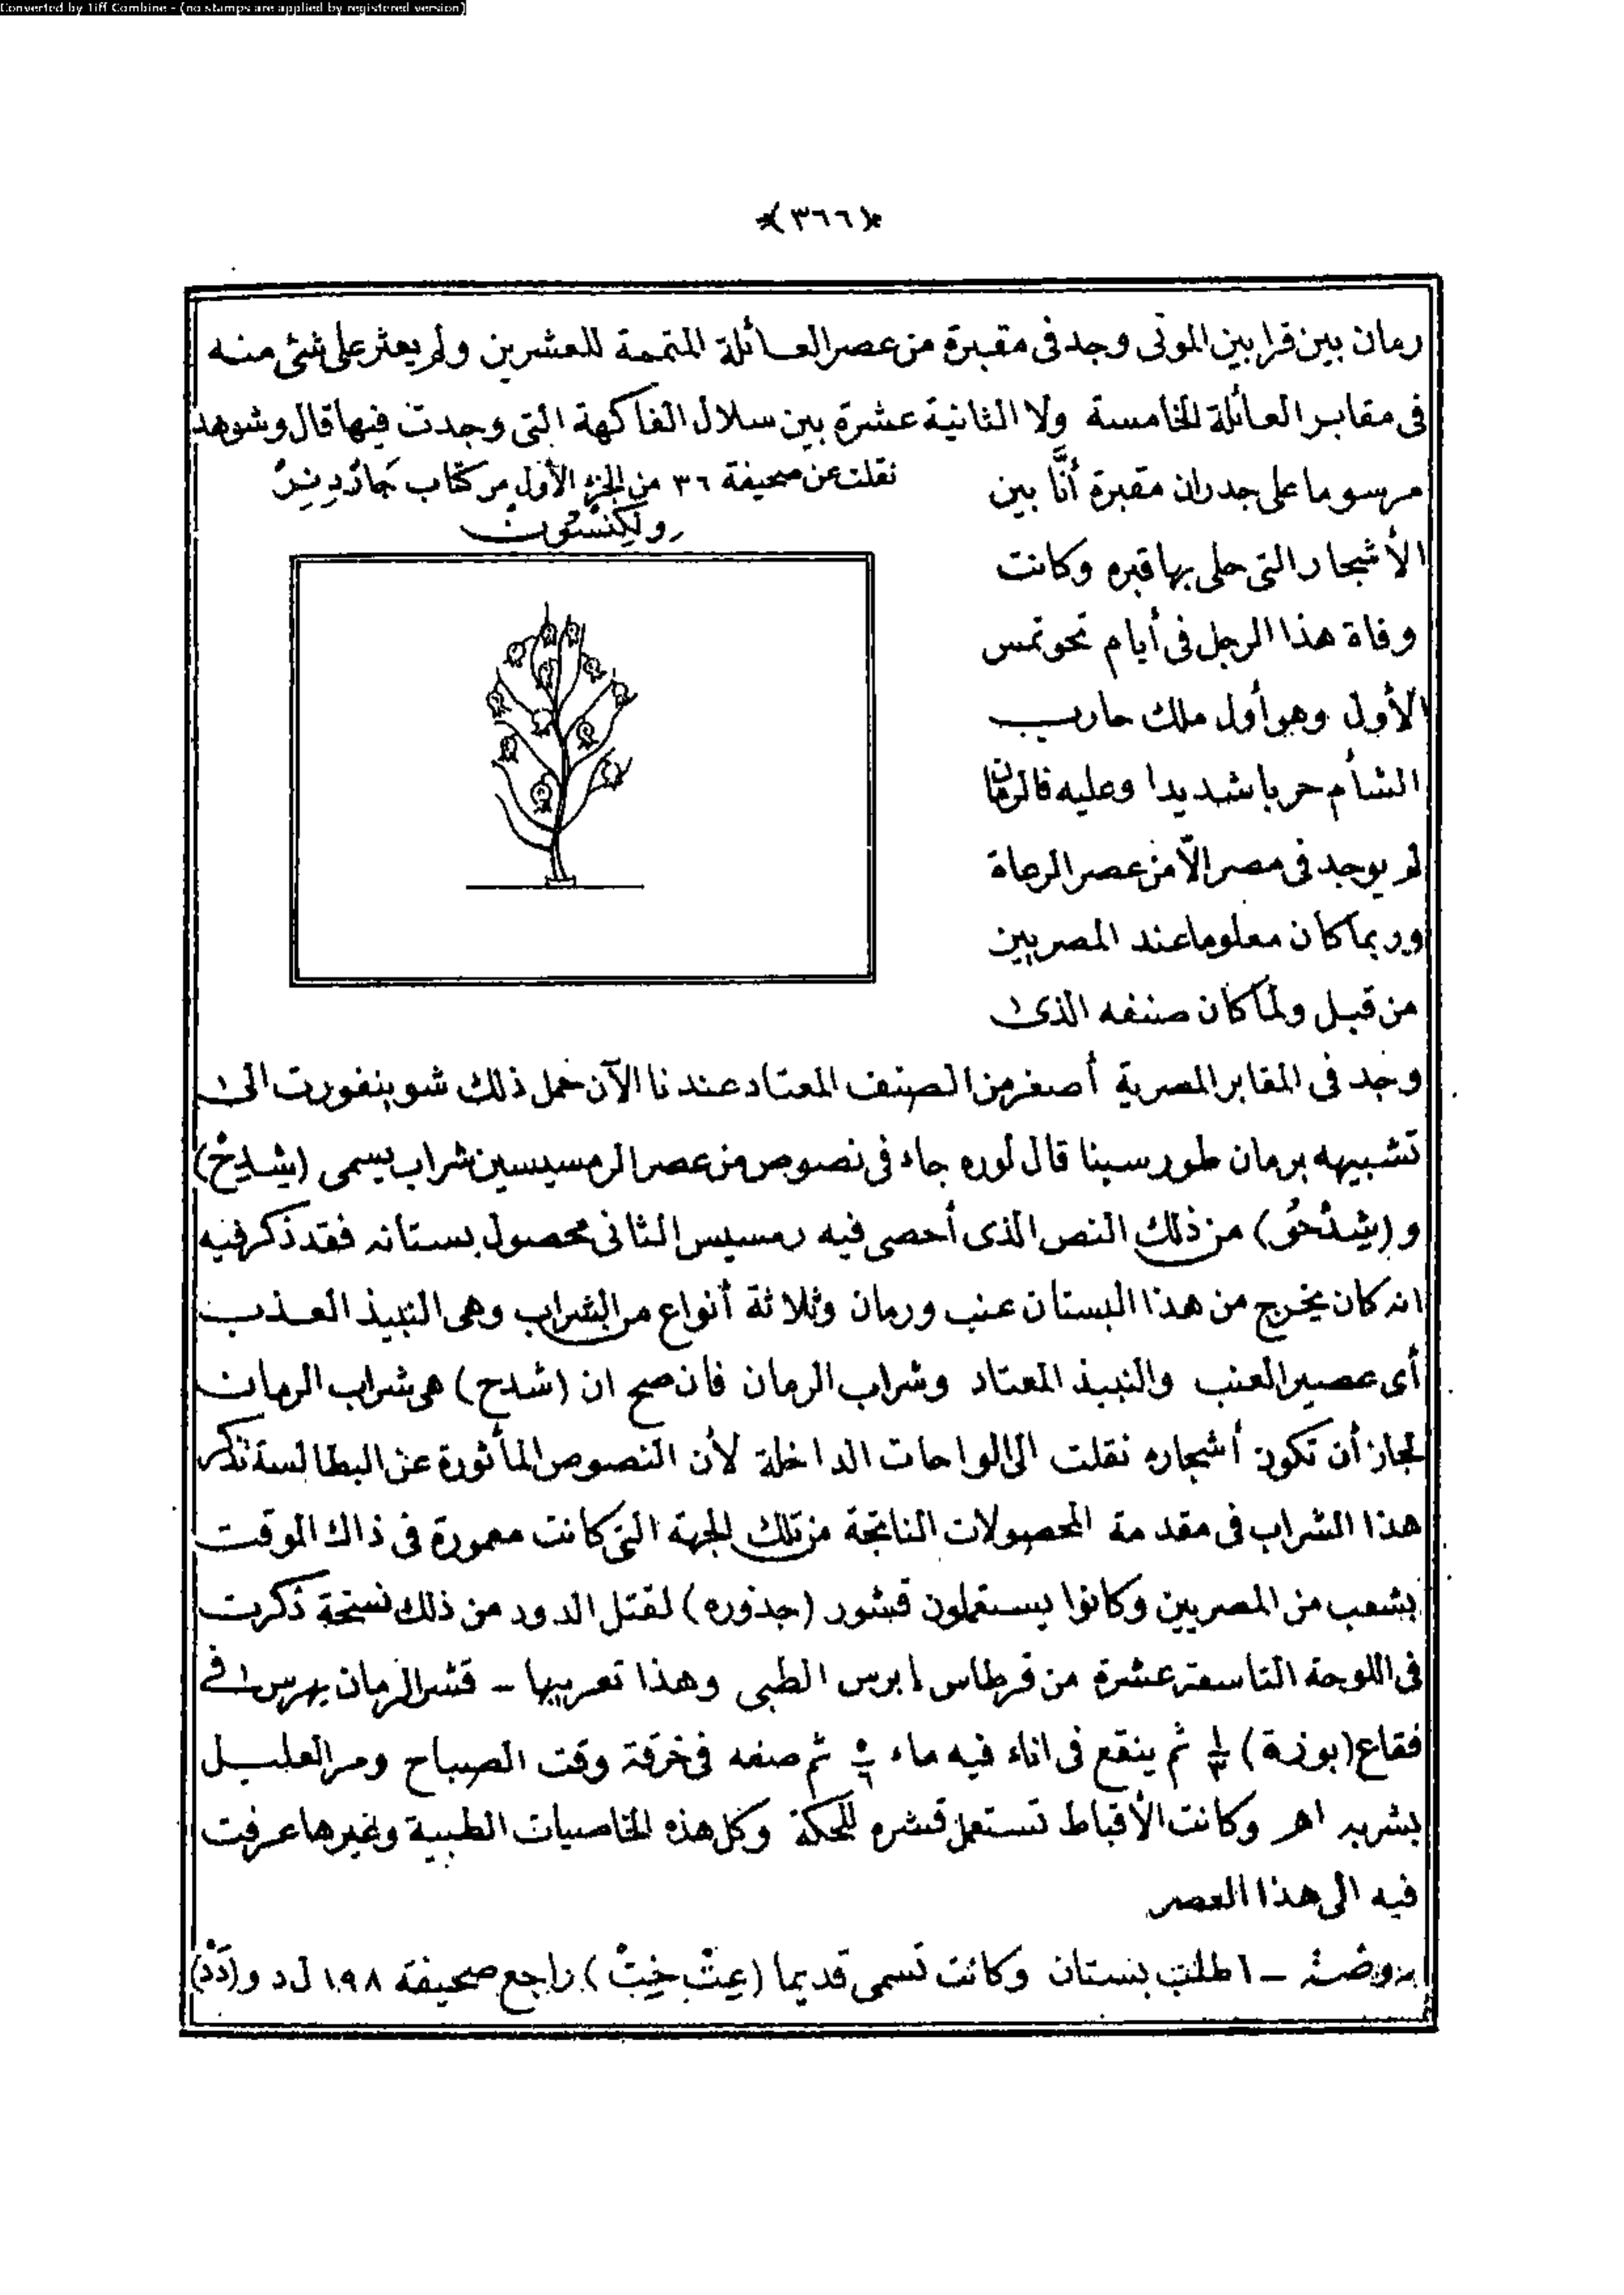 Converted by Tiff Combine - (no stamps are applied by registered version)
﴿٣٦٦﴾
رمان بين قرابين الموتى وجد فى مقبرة من عصر العائلة المتممة للعشرين ولم يعثر على شئ منه
فى مقابر العائلة الخامسة ولا الثانية عشرة بين سلال الفاكهة التى وجدت فيها قال وشوهد
مرسوما على جدران مقبرة أنَّا بين
الأشجار التى حلى بها قبره وكانت
وفاة هذا الرجل فى أيام تحوتمس
الأول وهو أول ملك حارب
الشأم حربا شديدا وعليه فالرمان
لم يوجد فى مصر الّا من عصر الرعاة
وربما كان معلوما عند المصريين
من قبل ولما كان صنفه الذى
نقلت عن صحيفة ٣٦ من الجزء الأول من كتاب جاردينر
ولكنسون
وجد فى المقابر المصرية أصغر من الصنف المعتاد عندنا الآن حمل ذلك شوينفورت الى
تشبيهه برمان طور سينا قال لوره جاء فى نصوص من عصر الرمسيسين شراب يسمى (شِدِحْ)
و (شِدْحُو) من ذلك النص الذى أحصى فيه رمسيس الثانى محصول بستانه فقد ذكر فيه
انه كان يخرج من هذا البستان عنب ورمان وثلاثة أنواع من الشراب وهى النبيذ العذب
أى عصير العنب والنبيذ المعتاد وشراب الرمان فان صح ان (شدح) هى شراب الرمان
لجاز أن تكون أشجاره نقلت الى الواحات الداخلة لأن النصوص المأثورة عن البطالسة تذكر
هذا الشراب فى مقدمة المحصولات الناتجة من تلك الجهة التى كانت معمورة فى ذاك الوقت
بشعب من المصريين وكانوا يستعملون قشور (جذوره) لقتل الدود من ذلك نسخة ذكرت
فى اللوحة التاسعة عشرة من قرطاس إبرس الطبى وهذا تعريبها – قشر الرمان يهرس فى
فقاع (بوزة) ثم ينقع فى اناء فيه ماء ثم صفه فى خرقة وقت الصباح ومر العليل
بشربه اهـ وكانت الأقباط تستعمل قشره للحكة وكل هذه الخاصيات الطبية وغيرها عرفت
فيه الى هذا العصر
روضة – اطلب بستان وكانت تسمى قديما (عِتْ خِتْ) راجع صحيفة ١٩٨ ل د و (دَدْ)